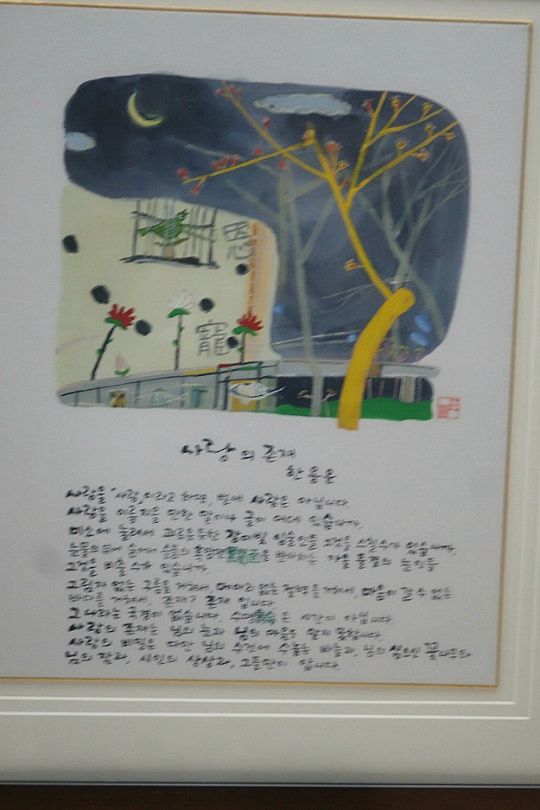 恩
寵
사랑의 존재
한용운
사랑을 "사랑"이라고 하면, 벌써 사랑은 아닙니다.
사랑을 이름지을 만한 말이나 글이 어데 있습니까.
미소에 눌려서 괴로운듯한 장미빛 입술인들 그것을 스칠수가 있습니까.
눈물의 뒤에 숨어서 슬픔의 흑암면을 반사하는 가을 물결의 눈인들
그것을 비출 수가 있습니까.
그림자 없는 구름을 거쳐서, 메아리 없는 절벽을 거쳐서, 마음이 갈 수 없는
바다를 거쳐서, 존재? 존재 입니다.
그 나라는 국경이 없습니다. 수명은 시간이 아닙니다.
사랑의 존재는 님의 눈과 님의 마음도 알지 못합니다.
사랑의 비밀은 다만 님의 수건에 수놓는 바늘과, 님의 심으신 꽃나무와
님의 잠과, 시인의 상상과, 그들만이 압니다.